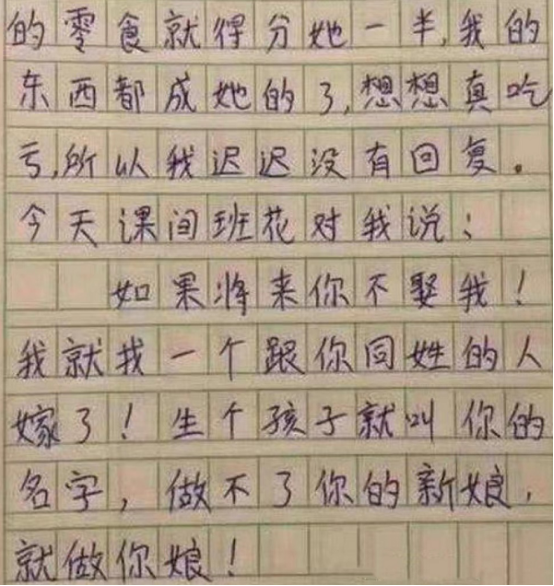 的零食就得分她一半,我的
东西都成她的了,想想真吃
亏,所以我迟迟没有回复。
今天课间班花对我说：
如果将来你不娶我！
我就找一个跟你同姓的人
嫁了！生个孩子就叫你的
名字，做不了你的新娘，
就做你娘！